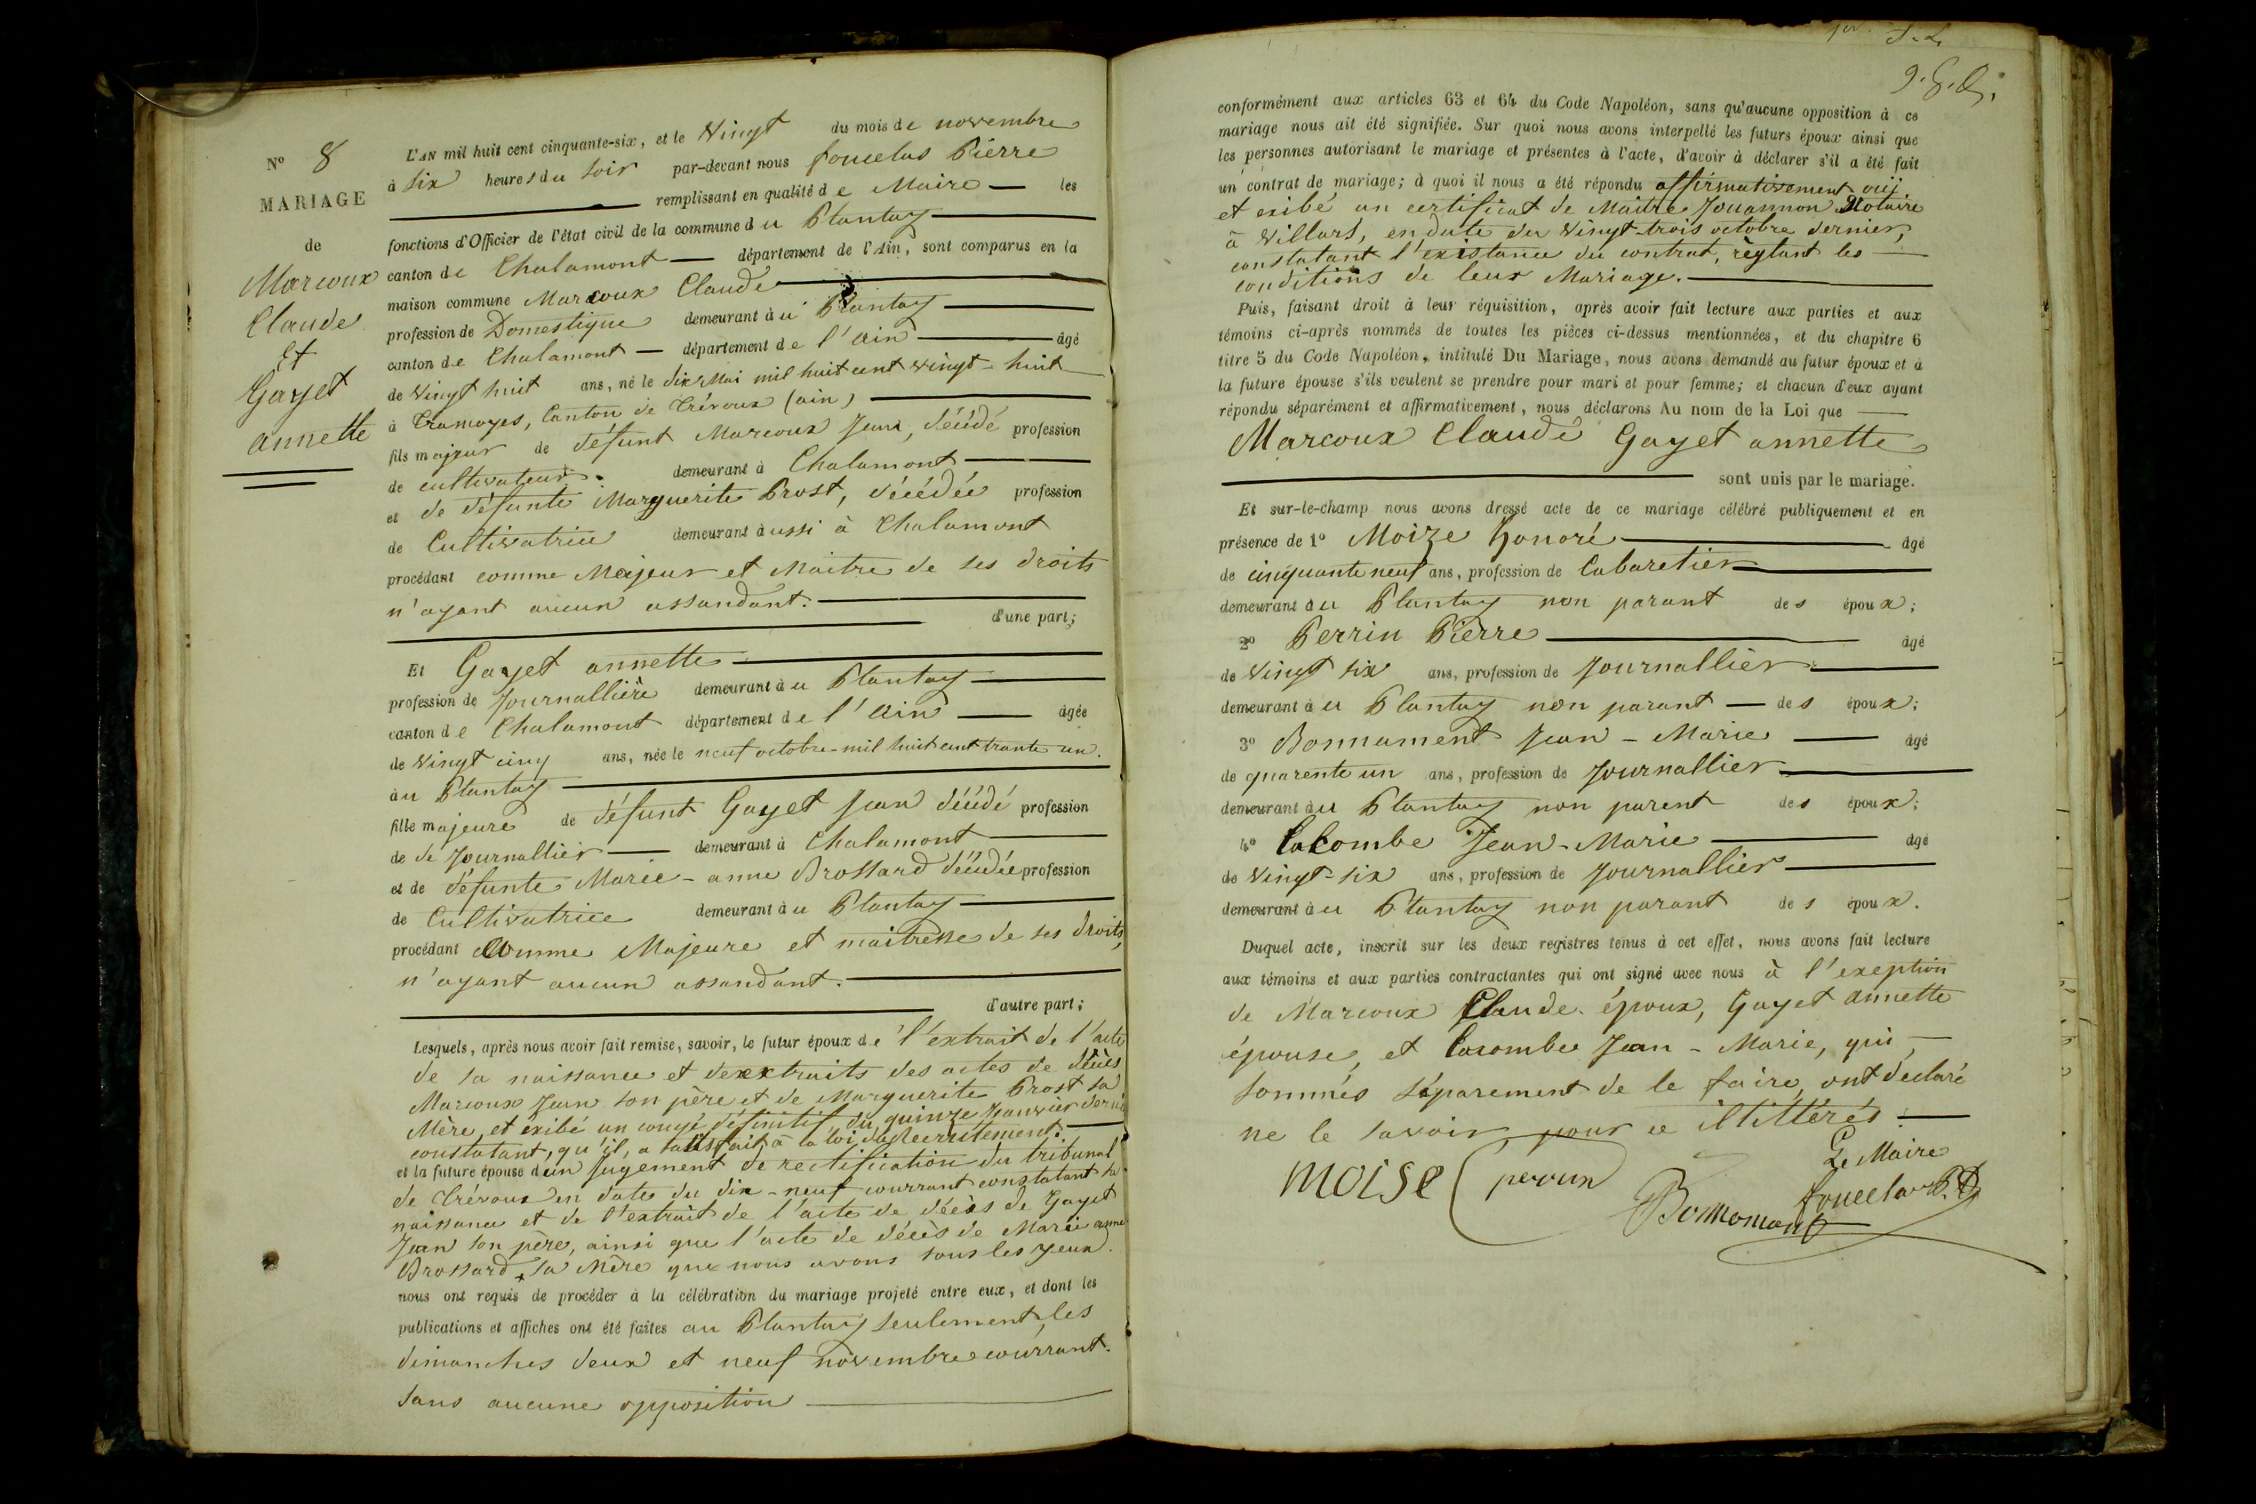 N° 8
MARIAGE
de
Marcoux
Claude
Et
Gayet
annette
L'AN mil huit cent cinquante-six, et le Vingt du mois de novembre
à six heures du soir par-devant nous fouclas Pierre
remplissant en qualité de Maire les
fonctions d'Officier de l'état civil de la commune du Plantay
canton de Chalamont département de l'Ain, sont comparus en la
maison commune Marcoux Claude
profession de Domestique demeurant au Plantay
canton de Chalamont département de l'ain âgé
de vingt huit ans, né le dix Mai mil huit cent vingt-huit
à Tramoyes, Canton de Trévoux (ain)
fils majeur de défunt Marcoux Jean, décédé profession
de cultivateur demeurant à Chalamont
et de défunte Marguerite Prost, décédée profession
de Cultivatrice demeurant aussi à Chalamont
procédant comme Majeur et Maitre de ses droits
n'ayant aucun assandant.
d'une part;
Et Gayet annette
profession de Journallière demeurant au Plantay
canton de Chalamont département de l'ain âgée
de vingt cinq ans, née le neuf octobre mil huit cent trante un.
au Plantay
fille majeure de défunt Gayet Jean décédé profession
de de Journallier demeurant à Chalamont
et de défunte Marie-anne Brossard décédée profession
de Cultivatrice demeurant au Plantay
procédant comme Majeure et maitresse de ses droits,
n'ayant aucun assandant.
d'autre part;
Lesquels, après nous avoir fait remise, savoir, le futur époux de l'extrait de l'acte
de sa naissance et des extraits des actes de décès
Marcoux Jean son père et de Marguerite Prost sa
Mère, et exibé un congé définitif du quinze Janvier dernier
constatant, qu'il, a satisfait à la loi du Recrutement.
et la future épouse d'un jugement de rectification du tribunal
de Trévoux en date du dix-neuf courrant constatant sa
naissance et de l'extrait de l'acte de décès de Gayet
Jean son père, ainsi que l'acte de décès de Marie anne
Brossard, sa Mère que nous avons sous les yeux.
nous ont requis de procéder à la célébration du mariage projeté entre eux, et dont les
publications et affiches ont été faites au Plantay seulement, les
dimanches deux et neuf novembre courrant.
sans aucune opposition
conformément aux articles 63 et 64 du Code Napoléon, sans qu'aucune opposition à ce
mariage nous ait été signifiée. Sur quoi nous avons interpellé les futurs époux ainsi que
les personnes autorisant le mariage et présentes à l'acte, d'avoir à déclarer s'il a été fait
un contrat de mariage; à quoi il nous a été répondu affirmativement oui,
et exibé un certificat de Maitre Jouannon Notaire
à Villars, en date du vingt-trois octobre dernier,
constatant l'existance du contrat, règlant les
conditions de leur Mariage.
Puis, faisant droit à leur réquisition, après avoir fait lecture aux parties et aux
témoins ci-après nommés de toutes les pièces ci-dessus mentionnées, et du chapitre 6
titre 5 du Code Napoléon, intitulé Du Mariage, nous avons demandé au futur époux et à
la future épouse s'ils veulent se prendre pour mari et pour femme; et chacun d'eux ayant
répondu séparément et affirmativement, nous déclarons Au nom de la Loi que
Marcoux Claude Gayet annette
sont unis par le mariage.
Et sur-le-champ nous avons dressé acte de ce mariage célébré publiquement et en
présence de 1° Moize honoré âgé
de cinquante neuf ans, profession de Cabaretier
demeurant au Plantay non parant des époux;
2° Perrin Pierre âgé
de vingt six ans, profession de Journallier
demeurant au Plantay non parant des époux;
3° Bonnament Jean-Marie âgé
de quarente un ans, profession de Journallier
demeurant au Plantay non parent des époux;
4° Lacombe Jean-Marie âgé
de vingt-six ans, profession de Journallier
demeurant au Plantay non parant des époux.
Duquel acte, inscrit sur les deux registres tenus à cet effet, nous avons fait lecture
aux témoins et aux parties contractantes qui ont signé avec nous à l'exeption
de Marcoux Claude époux, Gayet annette
épouse, et Lacombe Jean-Marie, qui
sommés séparement de le faire, ont déclaré
ne le savoir, pour ce illittérés.
Le Maire
moise perrin
Bonnomant